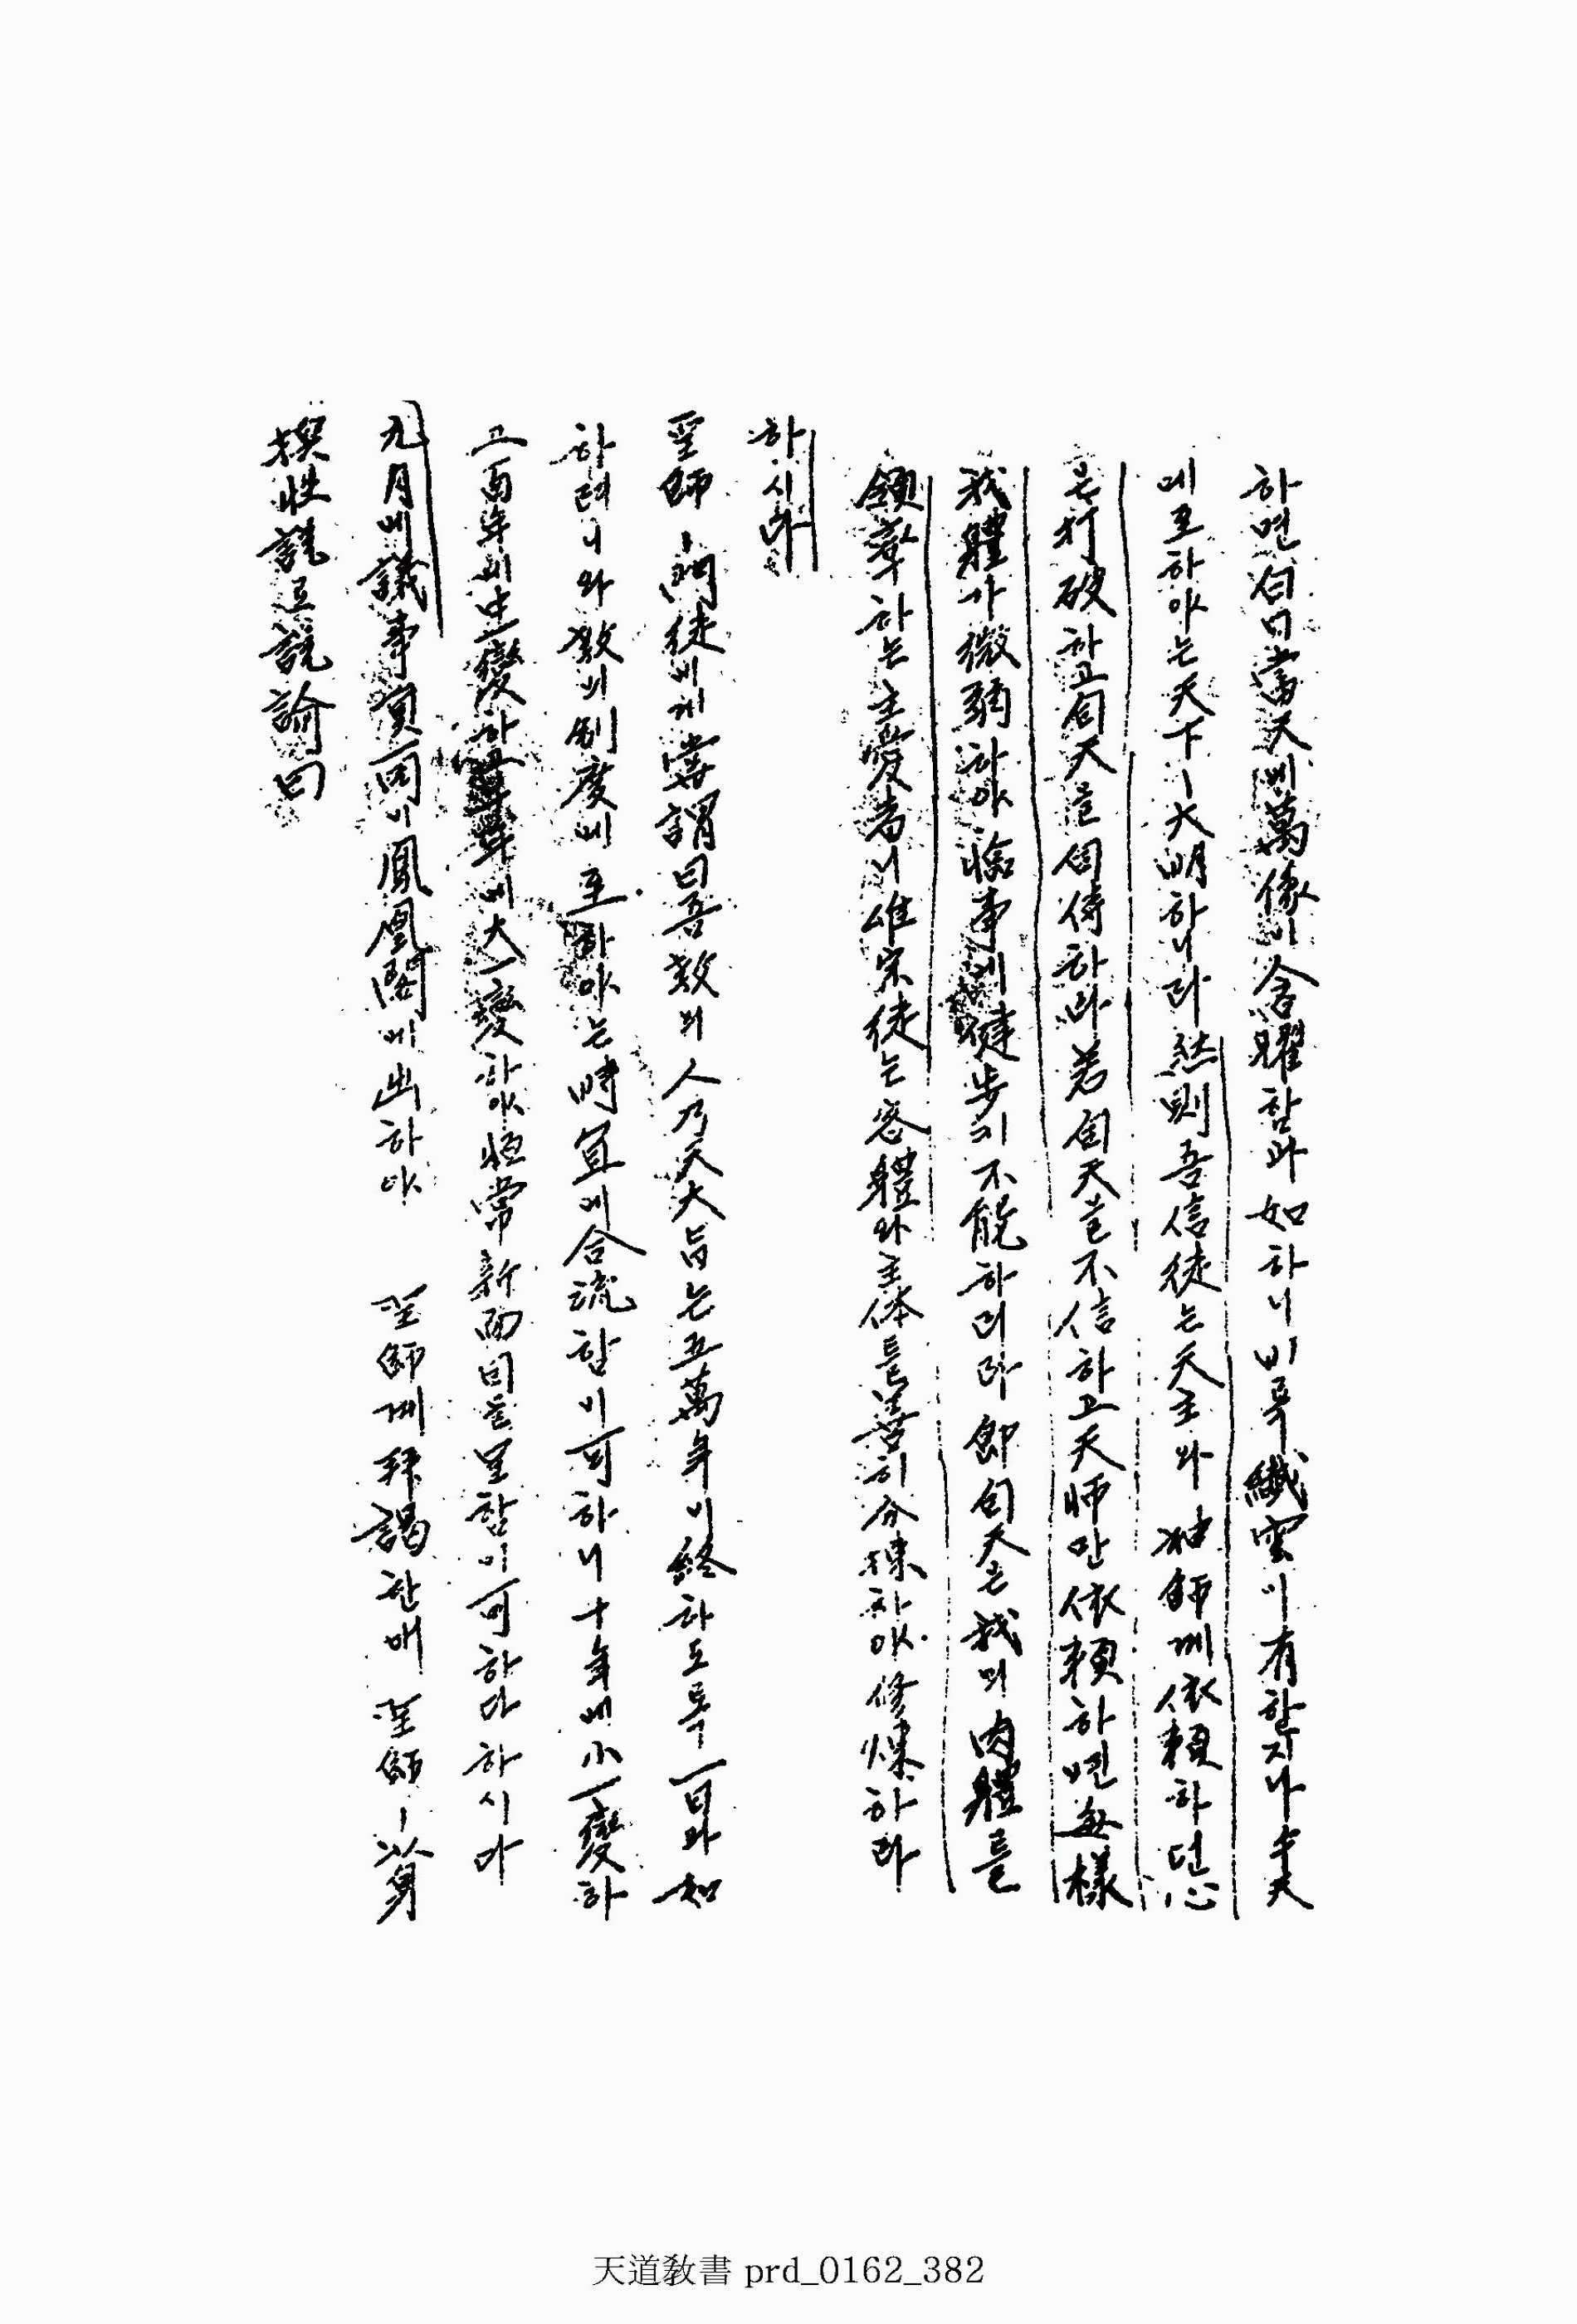 하면白日當天에萬像이含耀함과如하니비록纖雲이有할지나午天
에至하야는天下ㅣ大明하니라然則吾信徒는天主와神師께依賴하던心
은打破하고自天을自侍하라若自天을不信하고天師만依賴하면每樣
我體가微弱하야臨事에健步키不能하리라卽自天은我의肉體를
領率하는主愛者니唯宗徒는客體와主体를善히分揀하야修煉하라
하시다
聖師ㅣ門徒에게嘗謂曰吾敎의人乃天大旨는五萬年이終하도록一日과如
하려니와敎의制度에至하야는時宜에合流함이可하니十年에小一變하
고百年에中一變하고千年에大一變하야恒常新面目을呈함이可하다하시다
九月에議事員一同이鳳凰閣에出하야 聖師께拜謁한대 聖師ㅣ以身
換性說로說諭曰
天道敎書 prd_0162_382